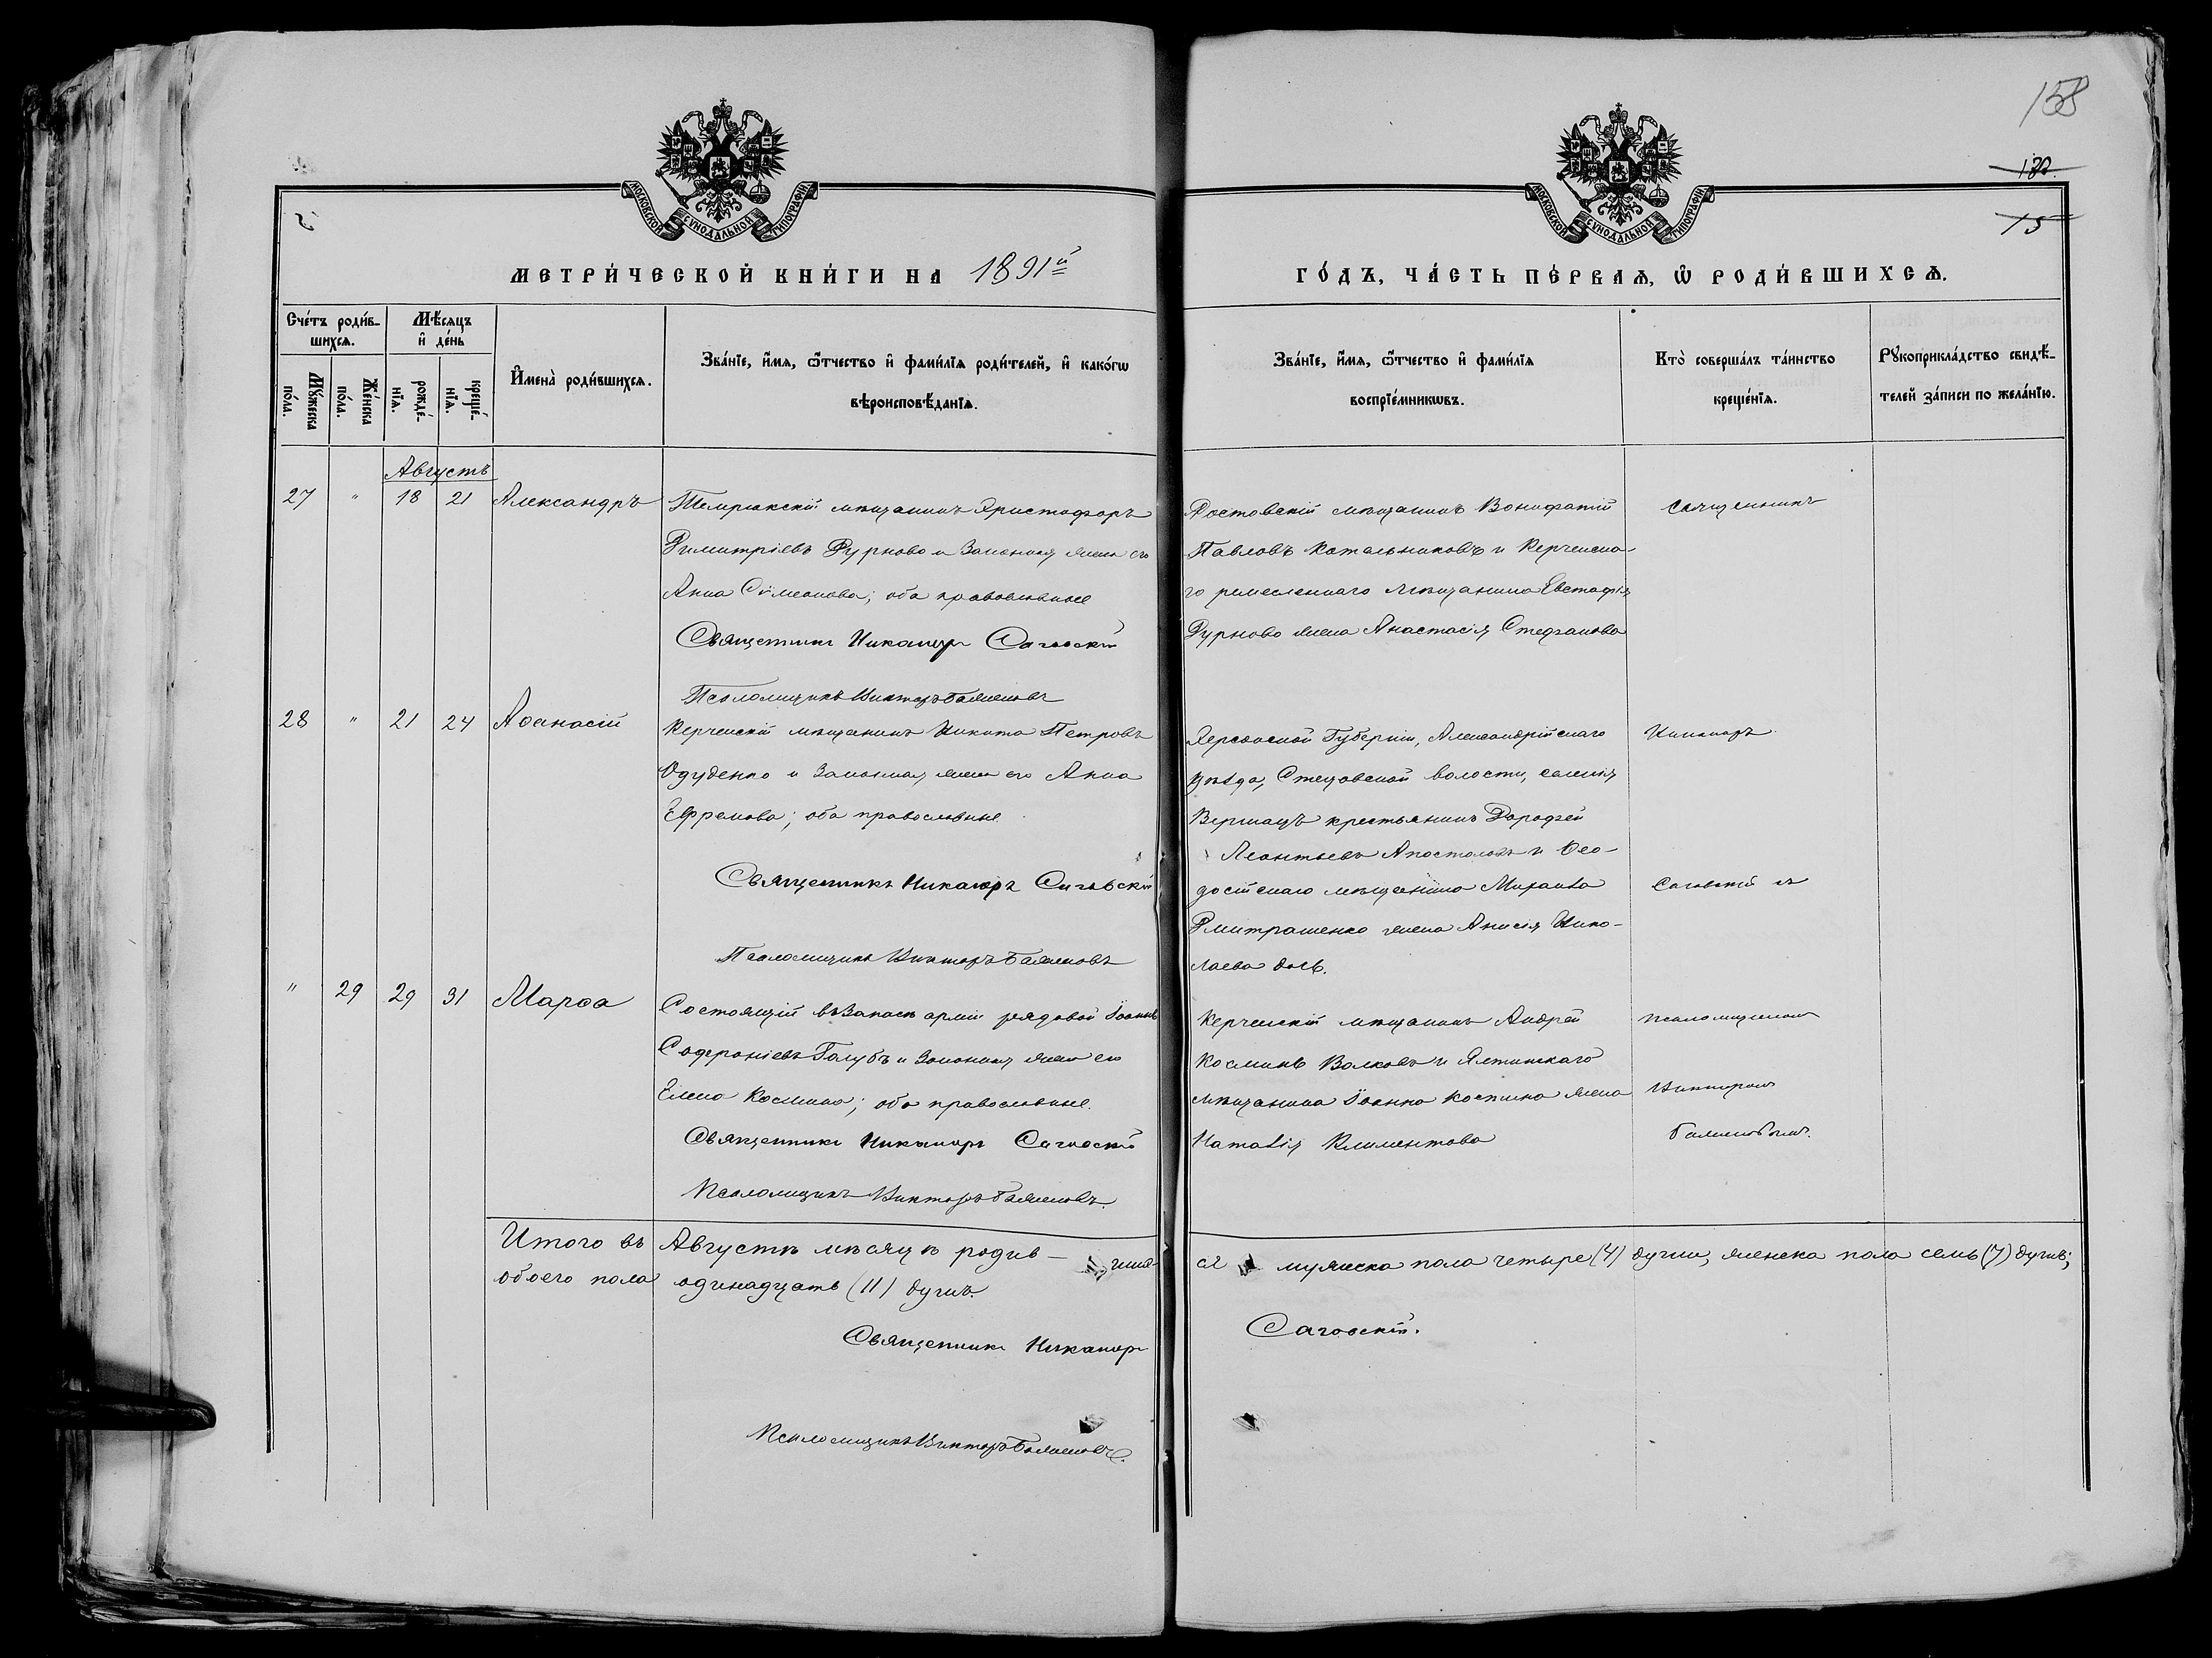 158
180.
15
МОСКОВСКОЙ СУНОДАЛЬНОЙ ТИПОГРАФІИ
МОСКОВСКОЙ СУНОДАЛЬНОЙ ТИПОГРАФІИ
МЕТРИ́ЧЕСКОЙ КНИ́ГИ НА 1891й
ГО́ДЪ, ЧА́СТЬ ПЕ́РВАѦ, Ѡ҆ РОДИ́ВШИХСѦ.
Сче́тъ роди́в-
шихсѧ.
Мꙋ́жеска по́ла.
Же́нска по́ла.
Мѣ́сѧцъ и҆ де́нь
рожде́-
нїѧ.
креще́-
нїѧ.
И҆мена̀ роди́вшихсѧ.
Зва́нїе, и҆́мѧ, ѻ҆́тчество и҆ фами́лїѧ роди́телей, и҆ како́гѡ
вѣроисповѣ́данїѧ.
Зва́нїе, и҆́мѧ, ѻ҆́тчество и҆ фами́лїѧ
воспрїе́мникѡвъ.
Кто̀ соверша́лъ та́инство
креще́нїѧ.
Рꙋкоприкла́дство свидѣ́-
телей за́писи по жела́нїю.
Августъ
27 " 18 21 Александръ
Темрюкскій мѣщанинъ Христофоръ
Димитріевъ Дурново и Законная жена его
Анна Симеонова; оба православные
Священникъ Никаноръ Саговскій
Псаломщикъ Викторъ Баженовъ
Ростовскій мѣщанинъ Вонифатій
Павловъ Котельниковъ и Керченска-
го ремесленнаго мѣщанина Евстафія
Дурново жена Анастасія Стефанова
Священникъ
28 " 21 24 Аѳанасій
Керченскій мѣщанинъ Никита Петровъ
Одуденко и Законная жена его Анна
Ефремова; оба православные.
Священникъ Никаноръ Саговскій
Псаломщикъ Викторъ Баженовъ
Херсонской Губерніи, Александрійскаго
уѣзда, Стецовской волости, селенія
Вершацъ крестьянинъ Дорофей
Леонтьевъ Апостоловъ и Ѳео-
досійскаго мѣщанина Михаила
Дмитрашенко жена Анисія Нико-
лаева дочь.
Никаноръ
Саговскій съ
" 29 29 31 Марѳа
Состоящій въ Запасѣ арміи рядовой Іоаннъ
Софроніевъ Голубъ и Законная жена его
Елена Космина; оба православные.
Священникъ Никаноръ Саговскій
Псаломщикъ Викторъ Баженовъ.
Керченскій мѣщанинъ Андрей
Косминъ Волковъ и Ялтинскаго
мѣщанина Іоанна Костина жена
Наталія Климентова
псаломщикомъ
Викторомъ
Баженовымъ.
Итого въ Августѣ мѣсяцѣ родив- шихся мужеска пола четыре (4) души, женска пола семь (7) душъ;
обоего пола одинадцать (11) душъ.
Священникъ Никаноръ Саговскій.
Псаломщикъ Викторъ Баженовъ.